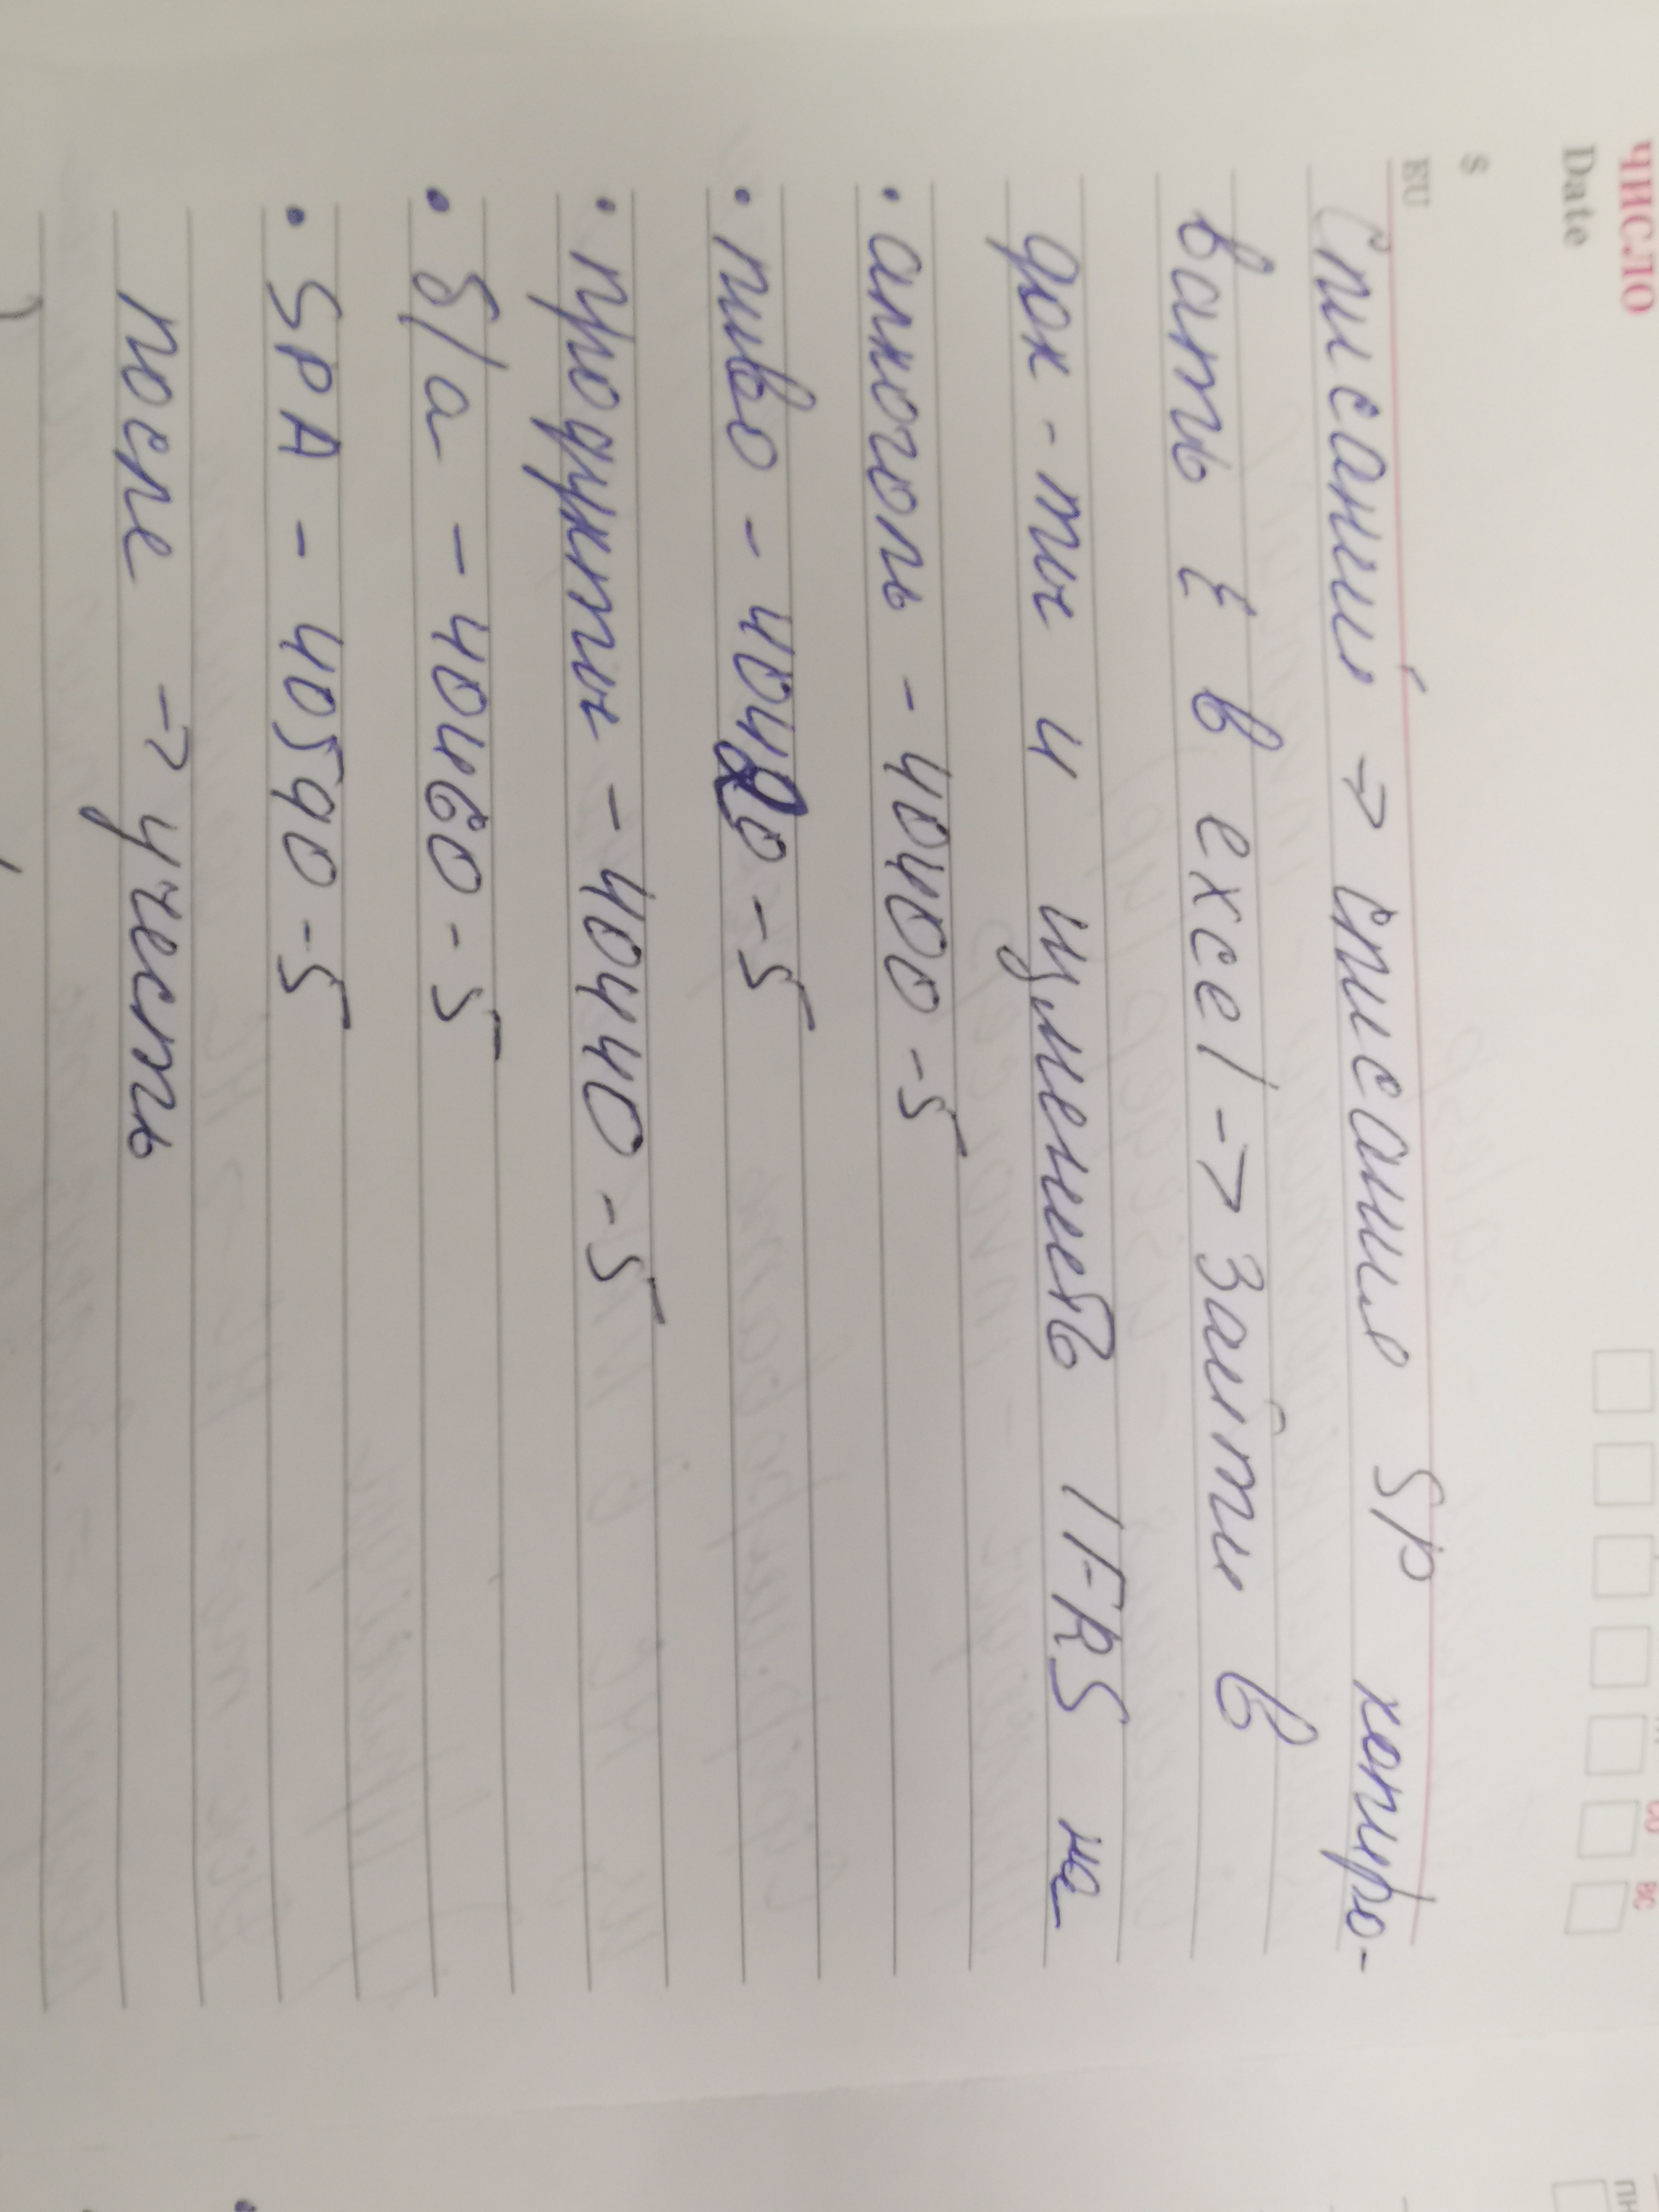 ЧИСЛО
Date
СО ВС
ПН
$
EU
Списаний → списания SP копиро-
вать & в excel → зайти в
док-ты и изменить IFRS на
• алкоголь - 40400-5
• пиво - 40420-5
• продукты - 40440-5
• б/а - 40460-5
• SPA - 40590-5
после → учесть